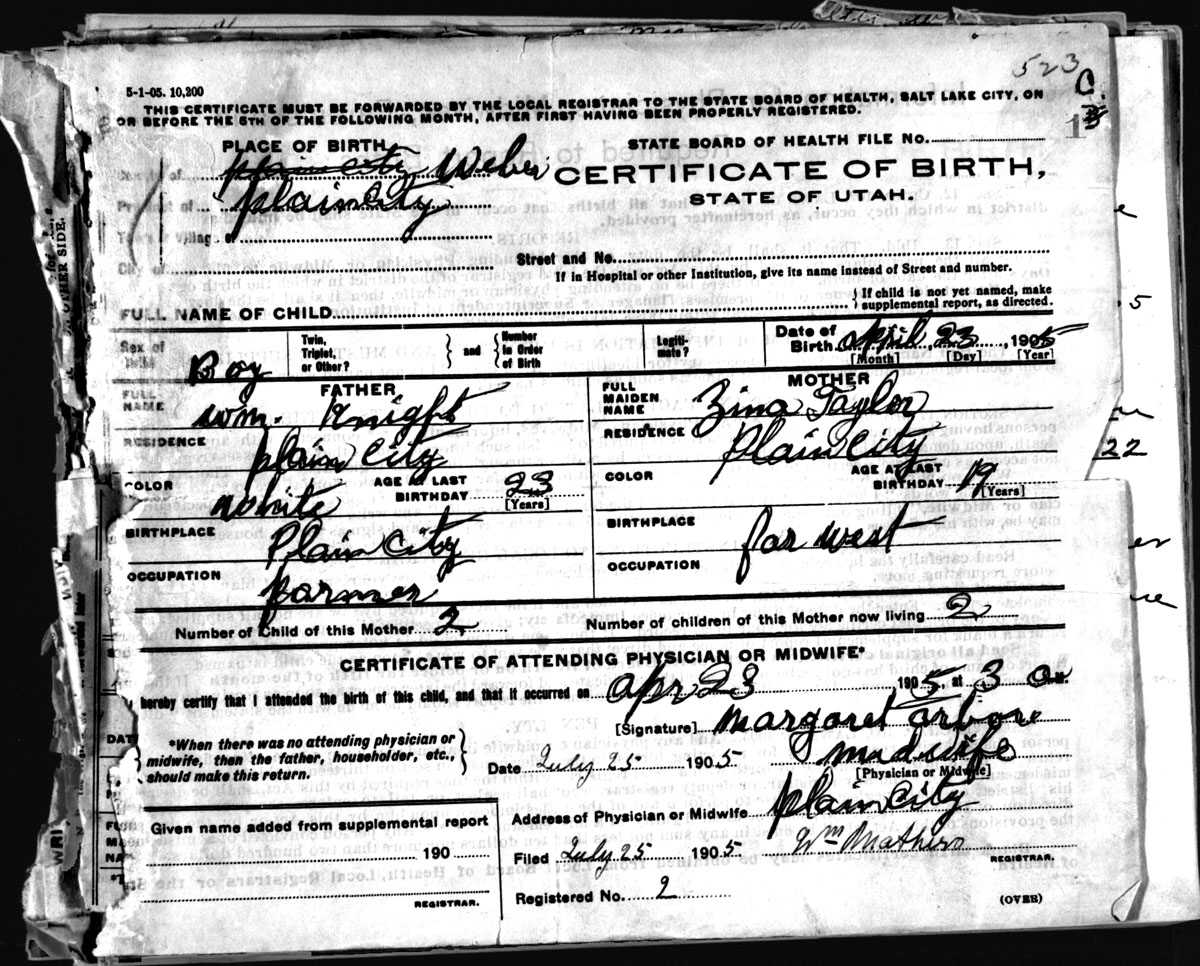 523
C.
5-1-05. 10,200
THIS CERTIFICATE MUST BE FORWARDED BY THE LOCAL REGISTRAR TO THE STATE BOARD OF HEALTH, SALT LAKE CITY, ON
OR BEFORE THE 5TH OF THE FOLLOWING MONTH, AFTER FIRST HAVING BEEN PROPERLY REGISTERED.
PLACE OF BIRTH
STATE BOARD OF HEALTH FILE NO.
of Plain City Weber
CERTIFICATE OF BIRTH,
STATE OF UTAH.
of Plain City
Village of
City of
Street and No.
If in Hospital or other Institution, give its name instead of Street and number.
FULL NAME OF CHILD
If child is not yet named, make
supplemental report, as directed.
Sex of
Child Boy
Twin,
Triplet,
or Other?
and
Number
in Order
of Birth
Legiti-
mate?
Date of
Birth April 23, 1905
[Month] [Day] [Year]
FATHER
FULL
NAME Wm. Knight
MOTHER
FULL
MAIDEN
NAME Zina Taylor
RESIDENCE Plain City
RESIDENCE Plain City
COLOR White
AGE AT LAST
BIRTHDAY 23
[Years]
COLOR
AGE AT LAST
BIRTHDAY 19
[Years]
BIRTHPLACE Plain City
BIRTHPLACE far west
OCCUPATION farmer
OCCUPATION
Number of Child of this Mother 2
Number of children of this Mother now living 2
CERTIFICATE OF ATTENDING PHYSICIAN OR MIDWIFE*
hereby certify that I attended the birth of this child, and that it occurred on Apr 23 1905, at 3 a.m.
[Signature] Margaret
midwife
[Physician or Midwife]
*When there was no attending physician or
midwife, then the father, householder, etc.,
should make this return.
Date July 25 1905
Address of Physician or Midwife Plain City
Given name added from supplemental report
190
REGISTRAR.
Filed July 25 1905
Wm Mathers
REGISTRAR.
Registered No. 2
(OVER)
OVER SIDE.
5
22